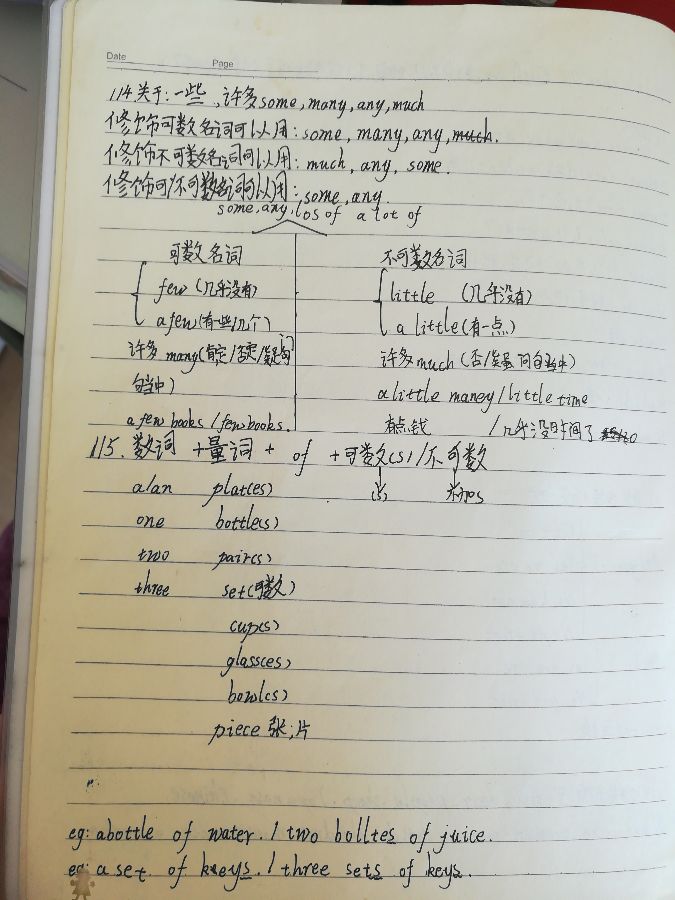 Date Page
114关于:一些,许多some,many,any,much
修饰可数名词可以用:some,many,any,much.
修饰不可数名词可以用:much,any,some.
修饰可/不可数名词可以用:some,any.
some,any,los of a lot of
可数名词 不可数名词
few(几乎没有) little (几乎没有)
a few(有一些/几个) a little(有一点)
许多 many(肯定/否定/疑问 许多much(否/疑 问句当中)
句当中) a little maney/little time
a few books/few books. 有点钱 /几乎没时间了
115.数词+量词+ of +可数(s)/不可数
(s) 不加s
a/an plat(es)
one bottle(s)
two pair(s)
three set(可数)
cup(s)
glass(es)
bowl(s)
piece 张;片
eg: abottle of water./two bolltes of juice.
eg: a set of keys./three sets of keys.